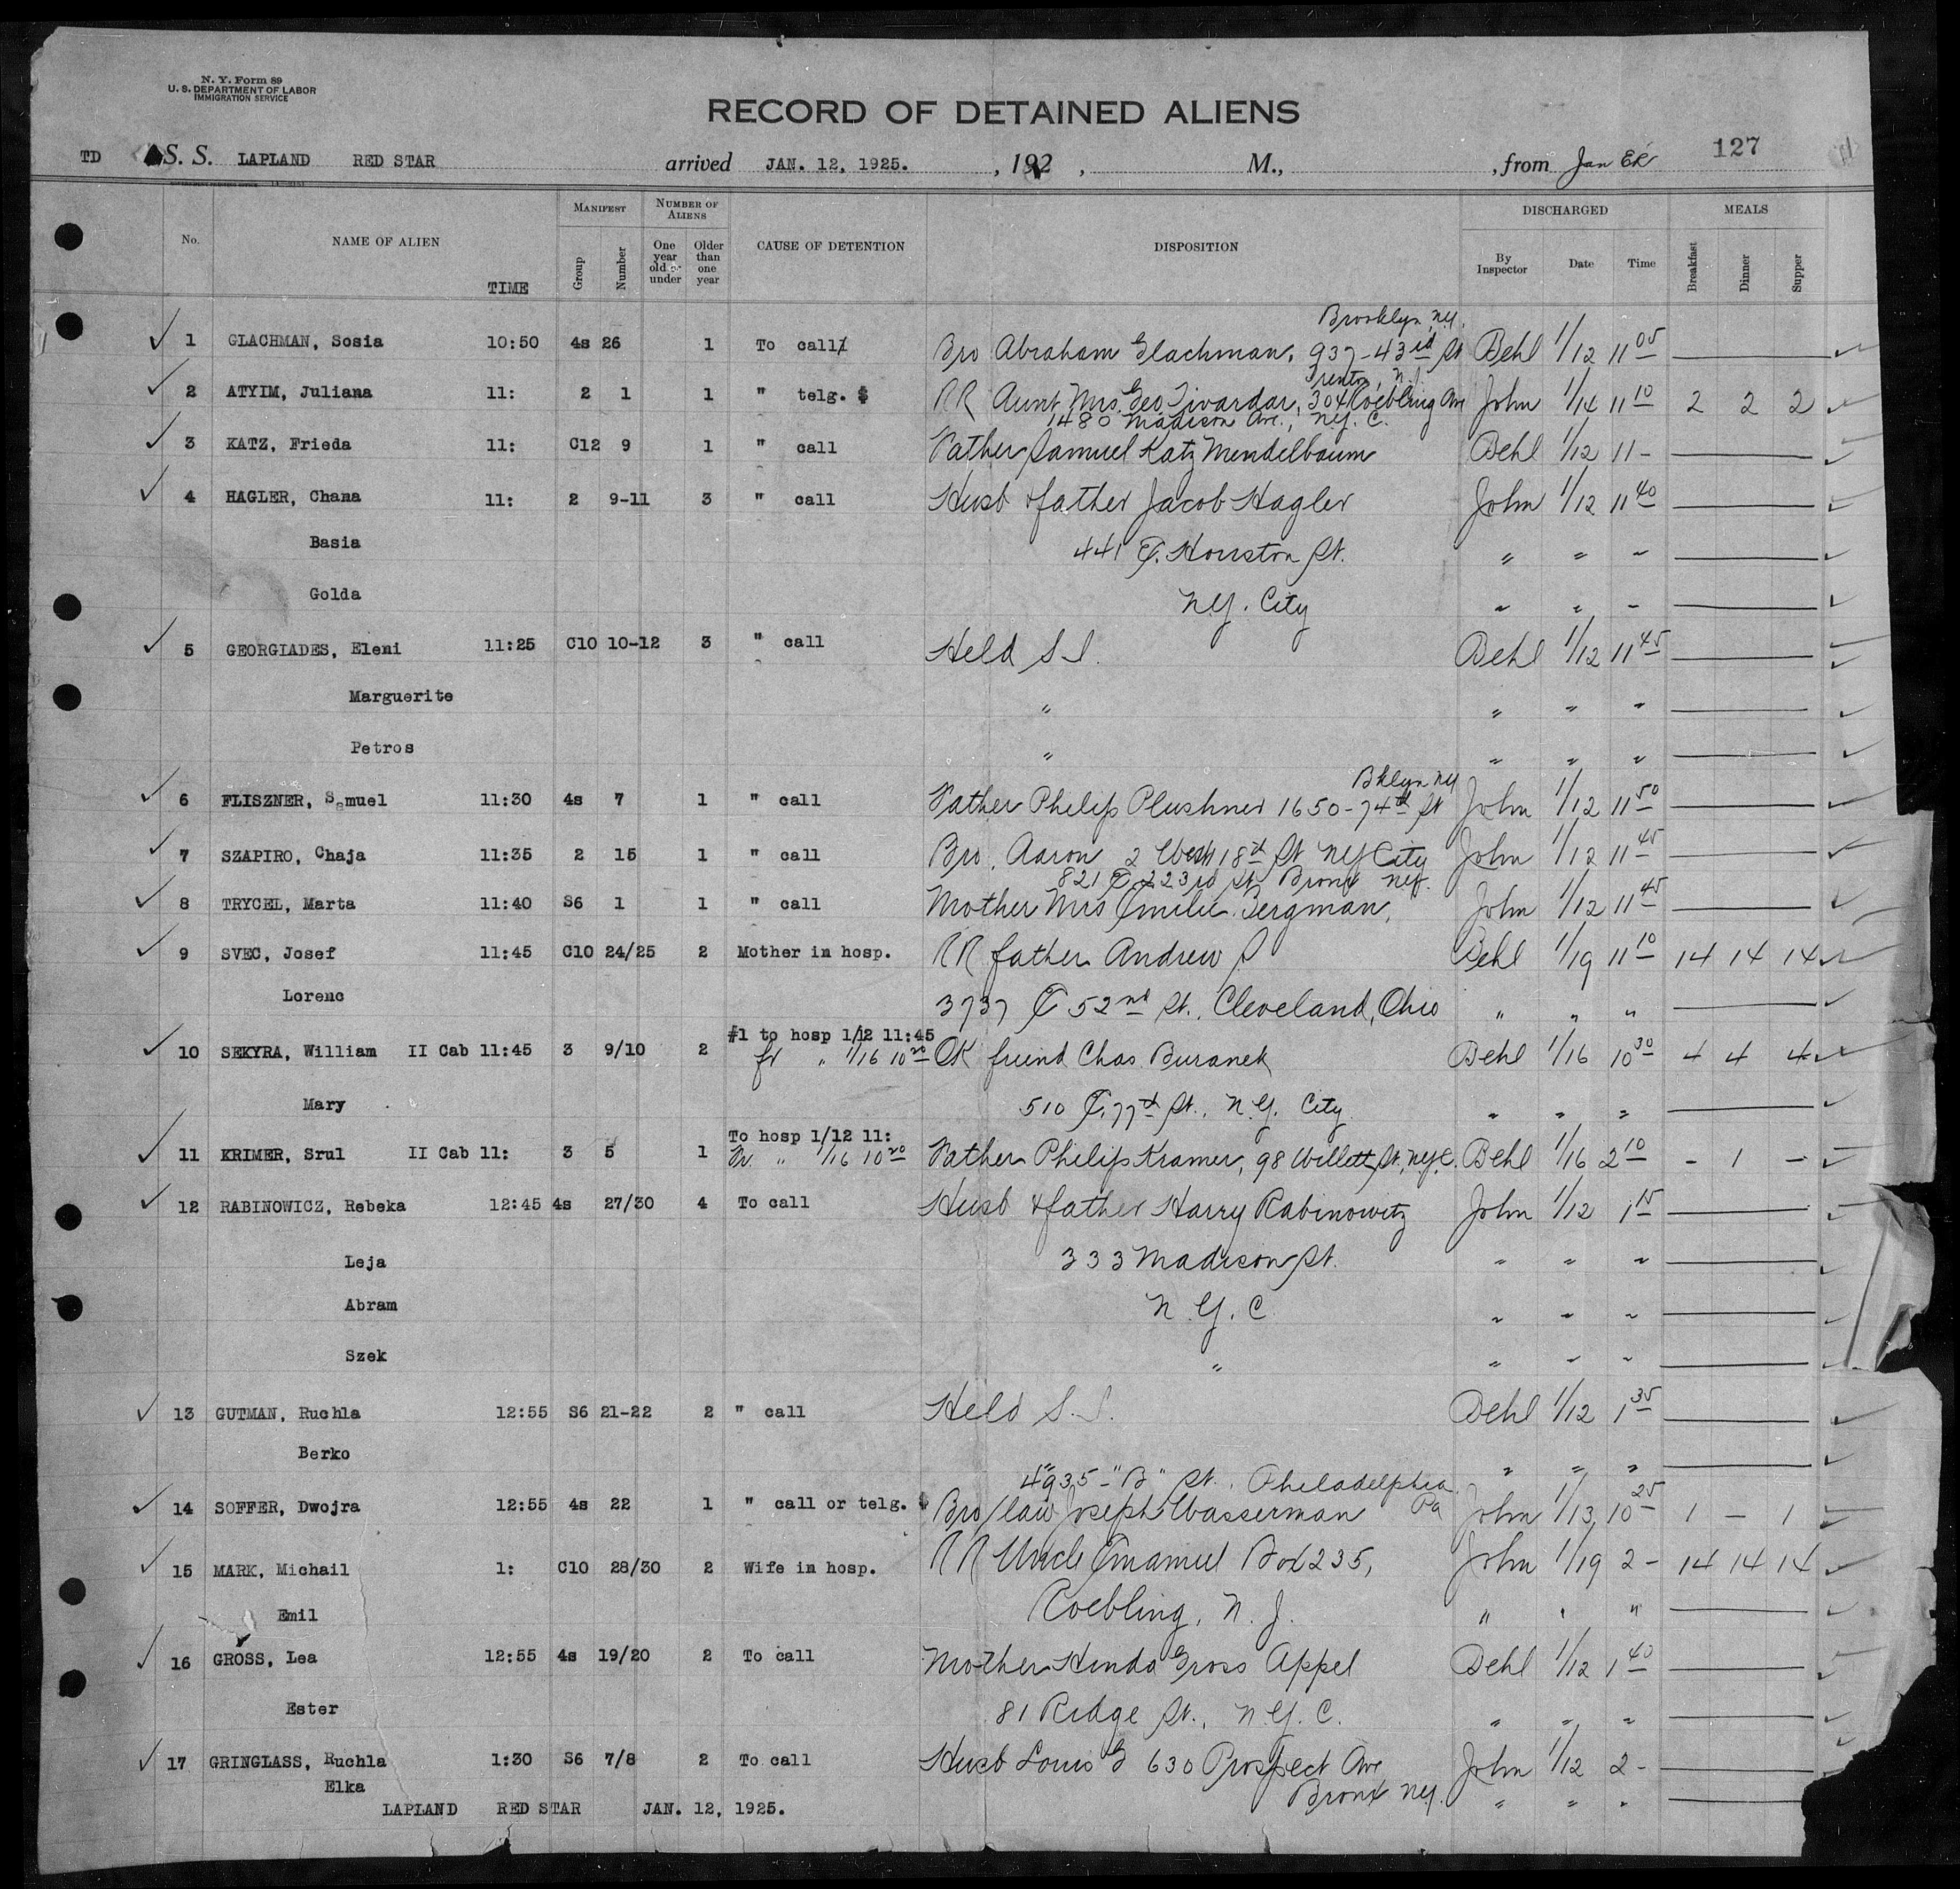 N. Y. Form 89
U. S. DEPARTMENT OF LABOR
IMMIGRATION SERVICE
RECORD OF DETAINED ALIENS
127
TD S. S. LAPLAND RED STAR arrived JAN. 12, 1925. , 192 , M., , from Jan
MANIFEST NUMBER OF ALIENS DISCHARGED MEALS
No. NAME OF ALIEN TIME Group Number One year old or under Older than one year CAUSE OF DETENTION DISPOSITION By Inspector Date Time Breakfast Dinner Supper
Brooklyn, N.Y.
✓ 1 GLACHMAN, Sosia 10:50 4s 26 1 To call Bro Abraham Glachman, 937-43rd St Behl 1/12 11 05 ✓
Trenton, N.J.
✓ 2 ATYIM, Juliana 11: 2 1 1 " telg. $ RR Aunt Mrs. Geo Tivardar, 304 Roebling Ave John 1/14 11 10 2 2 2 ✓
1480 Madison Ave., N.Y. C.
✓ 3 KATZ, Frieda 11: C12 9 1 " call Father Samuel Katz Mendelbaum Behl 1/12 11 - ✓
✓ 4 HAGLER, Chana 11: 2 9-11 3 " call Husb & father Jacob Hagler John 1/12 11 40 ✓
Basia 441 E. Houston St. " " " ✓
Golda N.Y. City " " " ✓
✓ 5 GEORGIADES, Eleni 11:25 C10 10-12 3 " call Held S.I. Behl 1/12 11 45 ✓
Marguerite " " " " ✓
Petros " " " " ✓
Bklyn NY
✓ 6 FLISZNER, Samuel 11:30 4s 7 1 " call Father Philip Plushner 1650-74th St John 1/12 11 50 ✓
✓ 7 SZAPIRO, Chaja 11:35 2 15 1 " call Bro. Aaron 2 West 18th St NY City John 1/12 11 45 ✓
821 E 223rd St Bronx N.Y.
✓ 8 TRYCEL, Marta 11:40 S6 1 1 " call Mother Mrs Emilie Bergman, John 1/12 11 45 ✓
✓ 9 SVEC, Josef 11:45 C10 24/25 2 Mother in hosp. RR father Andrew S Behl 1/19 11 10 14 14 14 ✓
Lorenc 3737 E 52nd St., Cleveland, Ohio " " " ✓
#1 to hosp 1/12 11:45
✓ 10 SEKYRA, William II Cab 11:45 3 9/10 2 fr " 1/16 10 20 OK friend Chas Buranek Behl 1/16 10 30 4 4 4 ✓
Mary 510 E. 77th St., N.Y. City " " " ✓
To hosp 1/12 11:
✓ 11 KRIMER, Srul II Cab 11: 3 5 1 Fr. " 1/16 10 20 Father Philip Kramer, 98 Willett St, N.Y.C. Behl 1/16 2 10 - 1 - ✓
✓ 12 RABINOWICZ, Rebeka 12:45 4s 27/30 4 To call Husb & father Harry Rabinowitz John 1/12 1 15 ✓
Leja 333 Madison St. " " " ✓
Abram N.Y.C. " " " ✓
Szek " " " " ✓
✓ 13 GUTMAN, Ruchla 12:55 S6 21-22 2 " call Held S.I. Behl 1/12 1 35 ✓
Berko " " " " ✓
4935-"B" St., Philadelphia
✓ 14 SOFFER, Dwojra 12:55 4s 22 1 " call or telg. $ Bro/law Joseph Wasserman Pa John 1/13 10 25 1 - 1 ✓
✓ 15 MARK, Michail 1: C10 28/30 2 Wife in hosp. RR Uncle Emanuel Box 235, John 1/19 2 - 14 14 14 ✓
Emil Roebling, N. J. " " " ✓
✓ 16 GROSS, Lea 12:55 4s 19/20 2 To call Mother Hinda Gross Appel Behl 1/12 1 40 ✓
Ester 81 Ridge St., N.Y.C. " " " ✓
✓ 17 GRINGLASS, Ruchla 1:30 S6 7/8 2 To call Husb Louis G 630 Prospect Ave John 1/12 2 - ✓
Elka Bronx N.Y. " " "
LAPLAND RED STAR JAN. 12, 1925.